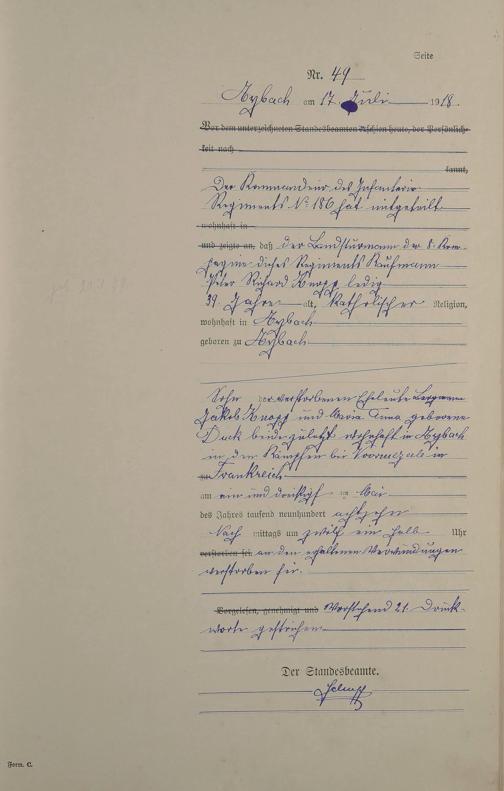 Seite
Nr. 49
Mybach am 17 Juli 1918.
Vor dem unterzeichneten Standesbeamten erschien heute, der Persönlich-
keit nach
kannt,
Der Kommandeur des Infanterie
Regiments No 186 hat mitgeteilt
wohnhaft in
und zeigte an, daß der Landsturmann der 8. Kom-
pagnie dieses Regiments Kaufmann
Peter Richard Knopp ledig
39 Jahre alt, katholischer Religion,
wohnhaft in Mybach
geboren zu Mybach
Sohn der verstorbenen Eheleute Bergmann
Jakob Knopp und Maria Anna geborene
beide zuletzt wohnhaft in Mybach
in den Kämpfen bei in
zu Frankreich
am ein und dreißig Mai
des Jahres tausend neunhundert achtzehn
Nach mittags um zwölf ein halb Uhr
verstorben sei an den erhaltenen Verwundungen
verstorben sei.
Vorgelesen, genehmigt und Vorstehend 21 Druck-
worte gestrichen
Der Standesbeamte.
Form. C.